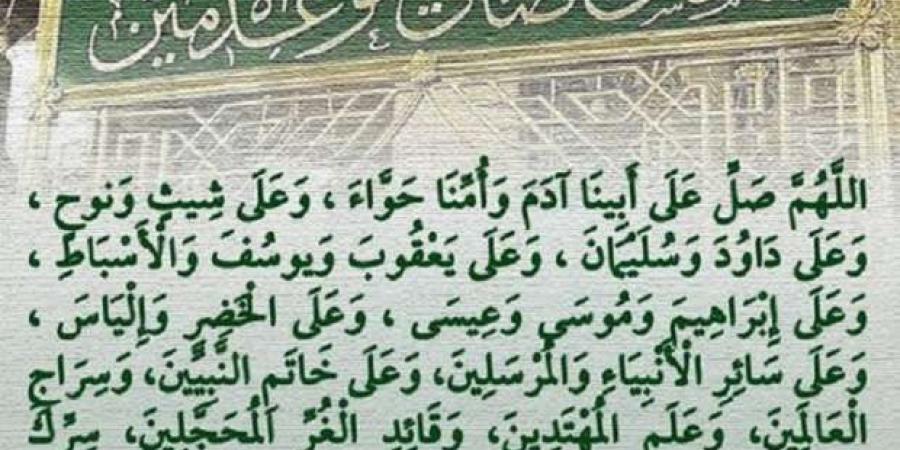 اللَّهُمَّ صَلِّ عَلَى أَبِينَا آدَمَ وَأُمِّنَا حَوَّاءَ ، وَعَلَى شِيثٍ وَنوحٍ ،
وَعَلَى دَاوُدَ وَسُلَيْمَانَ ، وَعَلَى يَعْقُوبَ وَيوسُفَ وَالْأَسْبَاطِ ،
وَعَلَى إِبْرَاهِيمَ وَمُوسَى وَعِيسَى ، وَعَلَى الْخَضِرِ وَإِلْيَاسَ ،
وَعَلَى سَائِرِ الْأَنْبِيَاءِ وَالْمُرْسَلِينَ، وَعَلَى خَاتَمِ النَّبِيِّينَ، وَسِرَاجِ
الْعَالَمِينَ، وَعَلَمِ الْمُهْتَدِينَ، وَقَائِدِ الْغُرِّ الْمُحَجَّلِينَ، سِرِّكَ